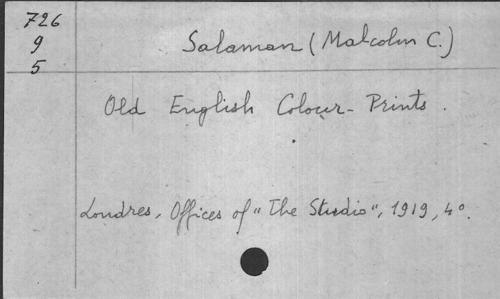 726
9
5
Salaman (Malcolm C.)
Old English Colour-Prints.
Londres, Offices of "The Studio", 1919, 4º.